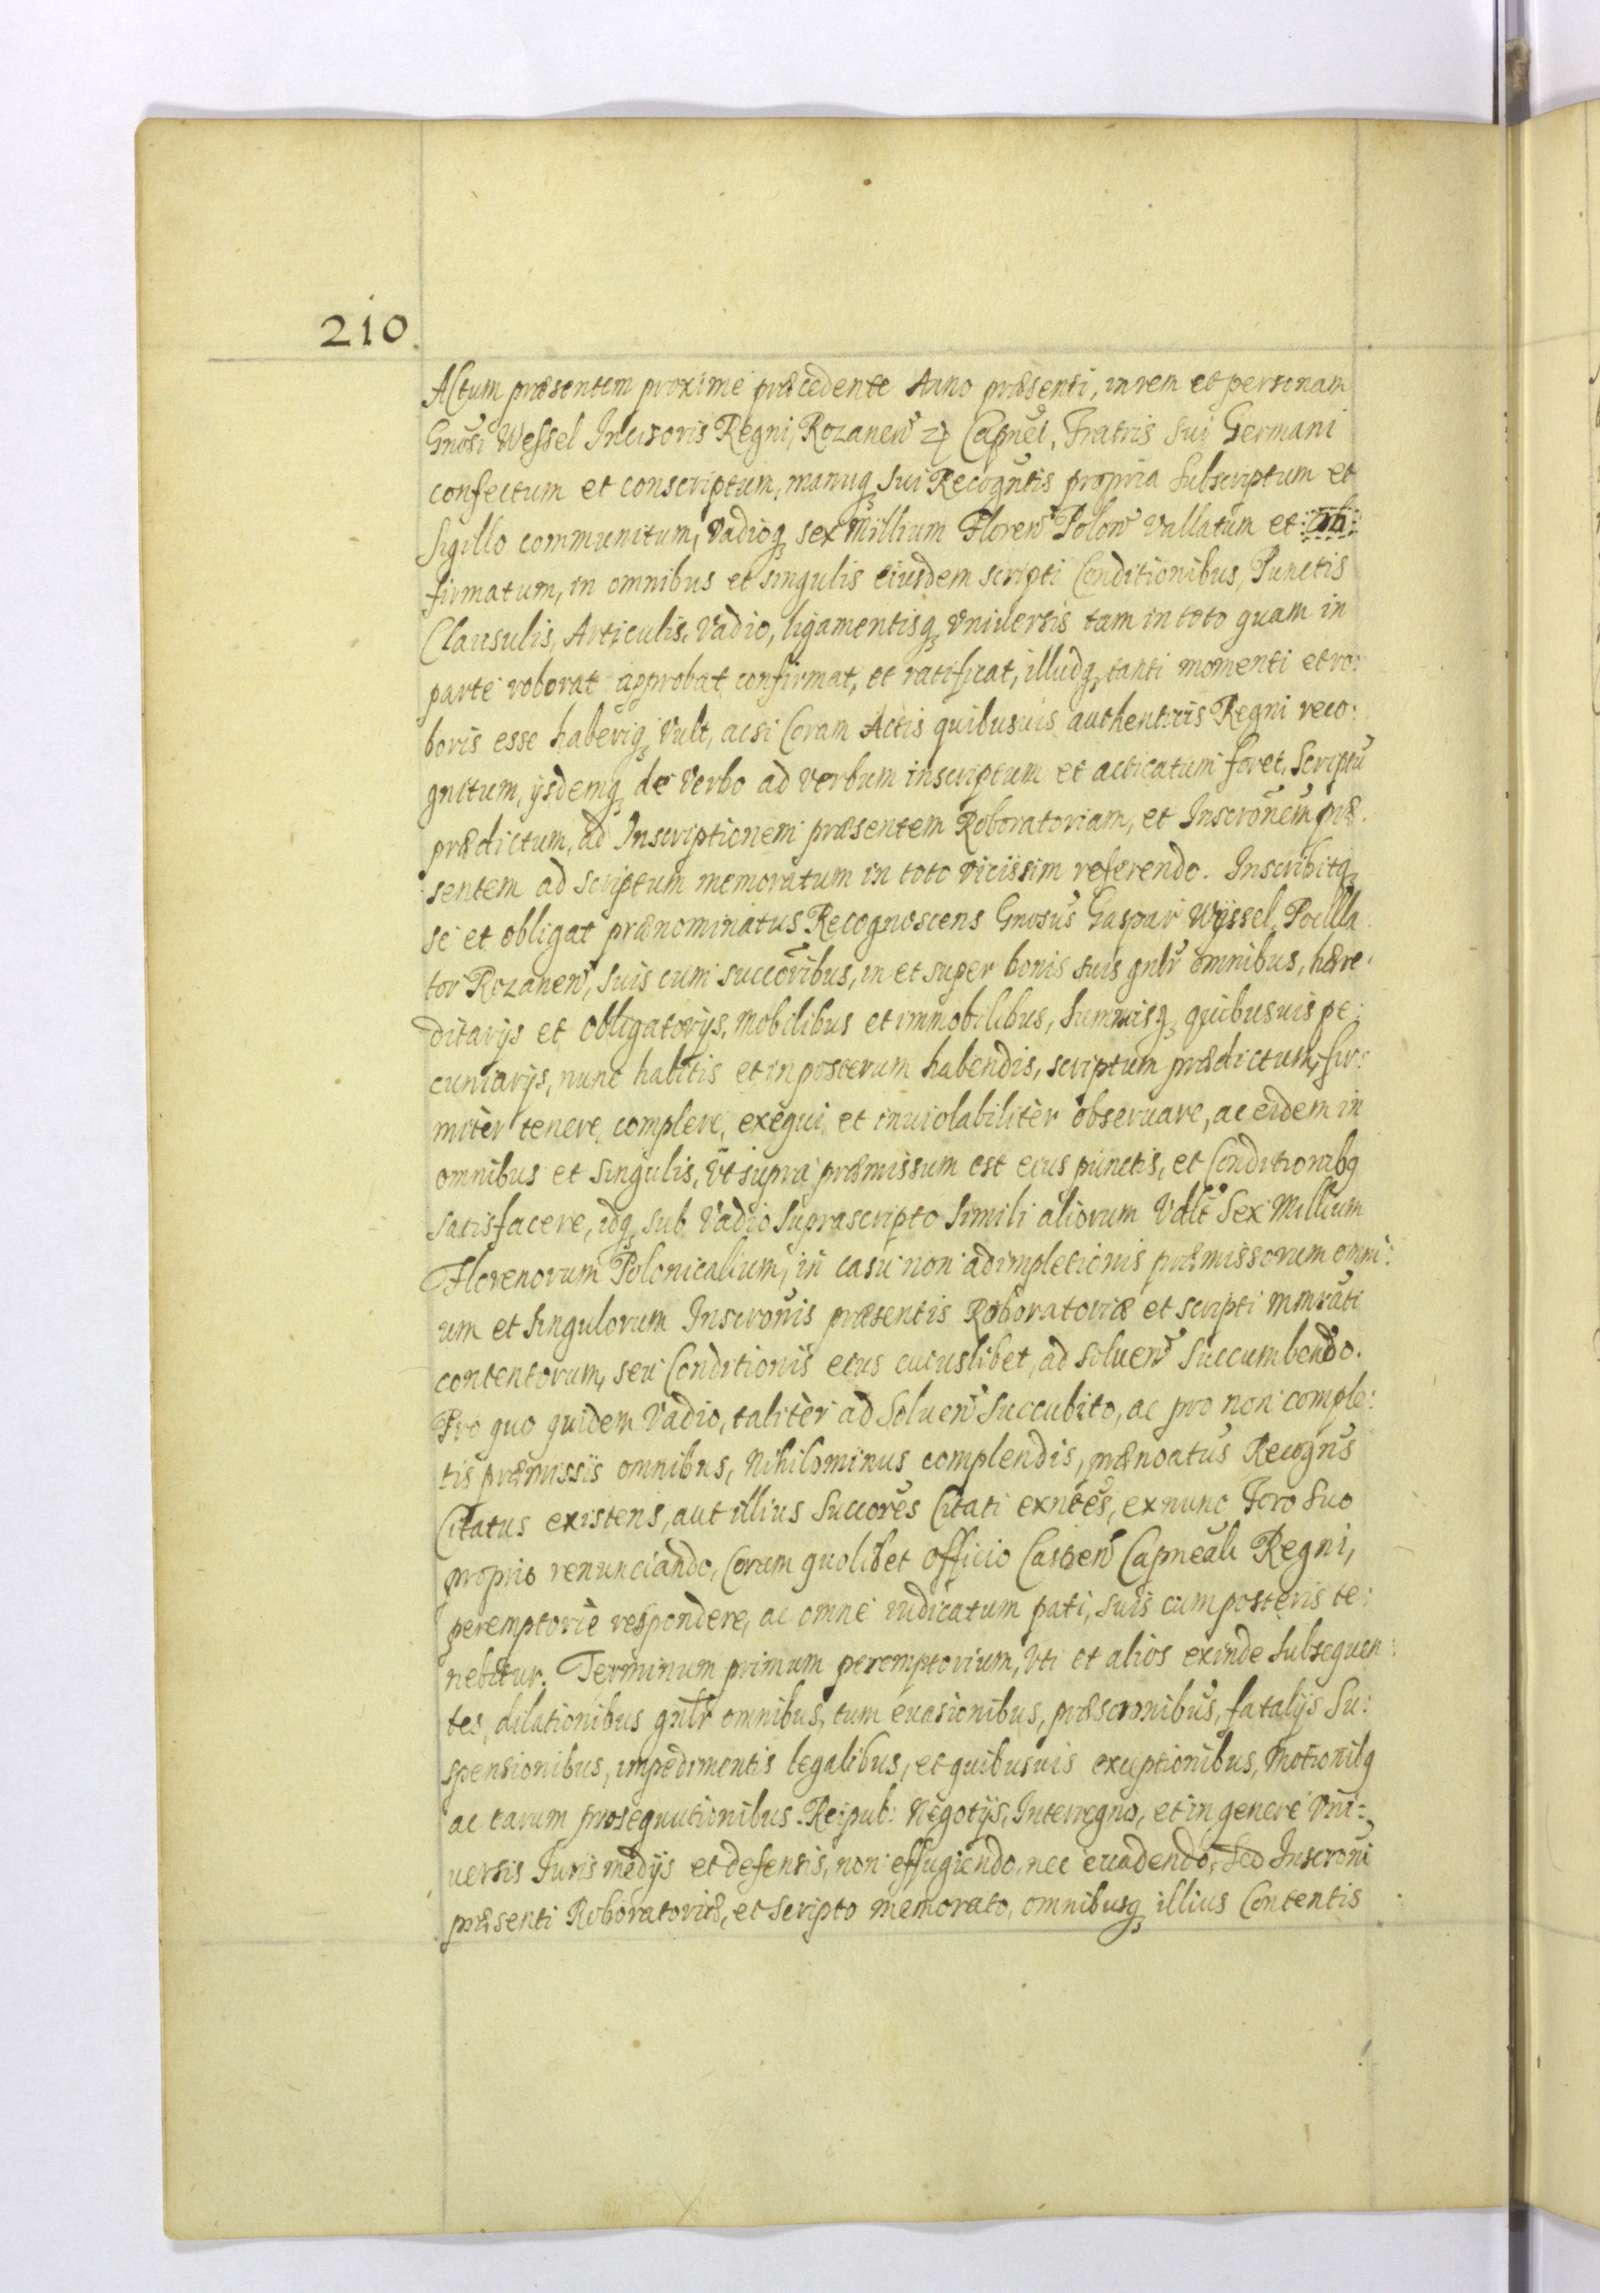 210
Actum præsentem proximè præcedente Anno præsenti, in rem et personam
Gnosi Wessel Incisoris Regni, Rozaneñ Capnei, Fratris sui Germani
confectum et conscriptum, manuq sui Recogntis propria Subscriptum et
sigillo communitum, Vadioq sex Millium Floreñ Poloñ vallatum et
firmatum, in omnibus et singulis eiusdem scripti Conditionibus, Punctis
Clausulis, Articulis, Vadio, ligamentisq Vniversis tam in toto quam in
parte roborat approbat confirmat, et ratificat, illudq tanti momenti et ro:
boris esse haberiq Vult, acsi Coram Actis quibusuis authenticis Regni reco:
gnitum, ijsdemq de Verbo ad verbum inscriptum et acticatum foret, Scriptũ
prædictum, ad Inscriptionem præsentem Roboratoriam, et Inscronem præ:
sentem ad scriptum memoratum in toto vicissim referendo. Inscribitq
se et obligat prænominatus Recognoscens Gnosus Gaspar Wÿssel Pocilla
tor Rozaneñ, suis cum succoribus, in et super bonis suis gnlr omnibus, hære:
ditarijs et obligatorijs, mobilibus et immobilibus, Summisq quibusuis pe:
cuniarijs, nunc habitis et in posterum habendis, scriptum prædictum, fir:
mitèr tenere, complere, exequi, et inuiolabilitèr obseruare, ac eidem in
omnibus et singulis, Vt supra præmissum est eius punctis, et Conditionibq
satisfacere, idq sub Vadio suprascripto simili aliorum Vdlt Sex Millium
Florenorum Polonicalium, in casu non adimpletionis præmissorum omni:
um et singulorum Inscronis præsentis Roboratoriæ et scripti mmrati
contentorum, seu Conditionis eius cuiuslibet, ad solueñ Succumbendo.
Pro quo quidem Vadio, talitèr ad Solueñ Succubito, ac pro non comple:
tis præmissis omnibus, Nihilominus complendis, prænoatus Recogns
Citatus existens, aut illius Succores Citati exntes, ex nunc Foro suo
proprio renunciando, Coram quolibet Officio Castreñ Capneali Regni,
peremptoriè respondere, ac omne iudicatum pati, suis cum posteris te:
nebitur. Terminum primum peremptorium, Vti et alios exinde subsequen:
tes, dilationibus gnlr omnibus, tum euasionibus, præscronibus, fatalijs su:
spensionibus, impedimentis legalibus, et quibusuis exceptionibus, Motionibq
ac earum prosequutionibus. Reipub: Negotijs, Interregno, et in genere Vni:
uersis Iuris medijs et defensis, non effugiendo, nec euadendo, sed Inscroni
præsenti Roboratoriæ, et scripto memorato, omnibusq illius Contentis